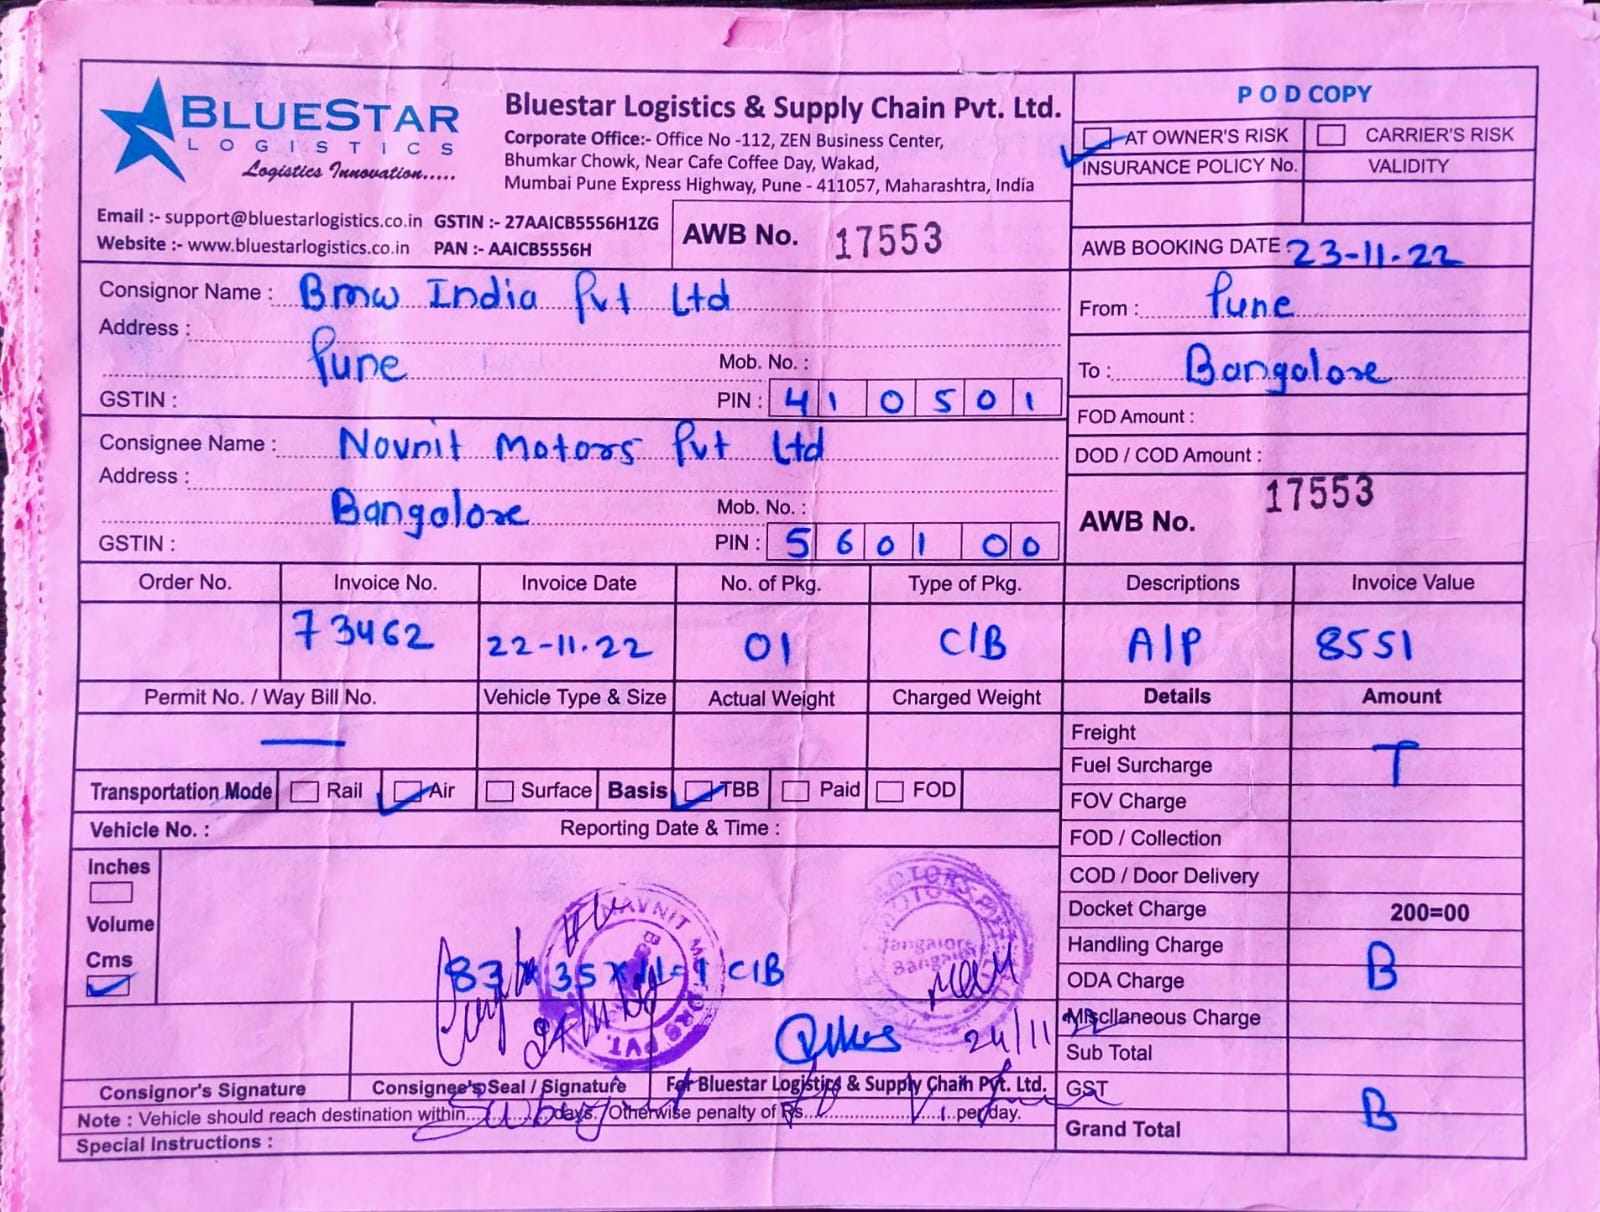 BLUESTAR
LOGISTICS
Logistics Innovation.....
Bluestar Logistics & Supply Chain Pvt. Ltd.
Corporate Office:- Office No -112, ZEN Business Center,
Bhumkar Chowk, Near Cafe Coffee Day, Wakad,
Mumbai Pune Express Highway, Pune - 411057, Maharashtra, India
Email :- support@bluestarlogistics.co.in GSTIN :- 27AAICB5556H1ZG
Website :- www.bluestarlogistics.co.in PAN :- AAICB5556H
AWB No. 17553
POD COPY
AT OWNER'S RISK CARRIER'S RISK
INSURANCE POLICY No. VALIDITY
AWB BOOKING DATE : 23-11-22
Consignor Name : Bmw India Pvt Ltd
Address :
Pune Mob. No. :
GSTIN : PIN : 410501
From : Pune
To : Bangalore
FOD Amount :
DOD / COD Amount :
Consignee Name : Novnit Motors Pvt Ltd
Address :
Bangalore Mob. No. :
GSTIN : PIN : 560100
17553
AWB No.
Order No. Invoice No. Invoice Date No. of Pkg. Type of Pkg. Descriptions Invoice Value
73462 22-11-22 01 C/B A/P 8551
Permit No. / Way Bill No. Vehicle Type & Size Actual Weight Charged Weight Details Amount
—
Freight
Fuel Surcharge T
FOV Charge
FOD / Collection
COD / Door Delivery
Docket Charge 200=00
Handling Charge
ODA Charge B
Miscllaneous Charge
Sub Total
GST
Grand Total B
Transportation Mode Rail Air Surface Basis TBB Paid FOD
Vehicle No. : Reporting Date & Time :
Inches
Volume
Cms
NAVNIT
PVT.
MOTORS
Bangalore
C/B
24/11
Consignor's Signature Consignee's Seal / Signature For Bluestar Logistics & Supply Chain Pvt. Ltd.
Note : Vehicle should reach destination within............days. Otherwise penalty of Rs. ........................ per day.
Special Instructions :